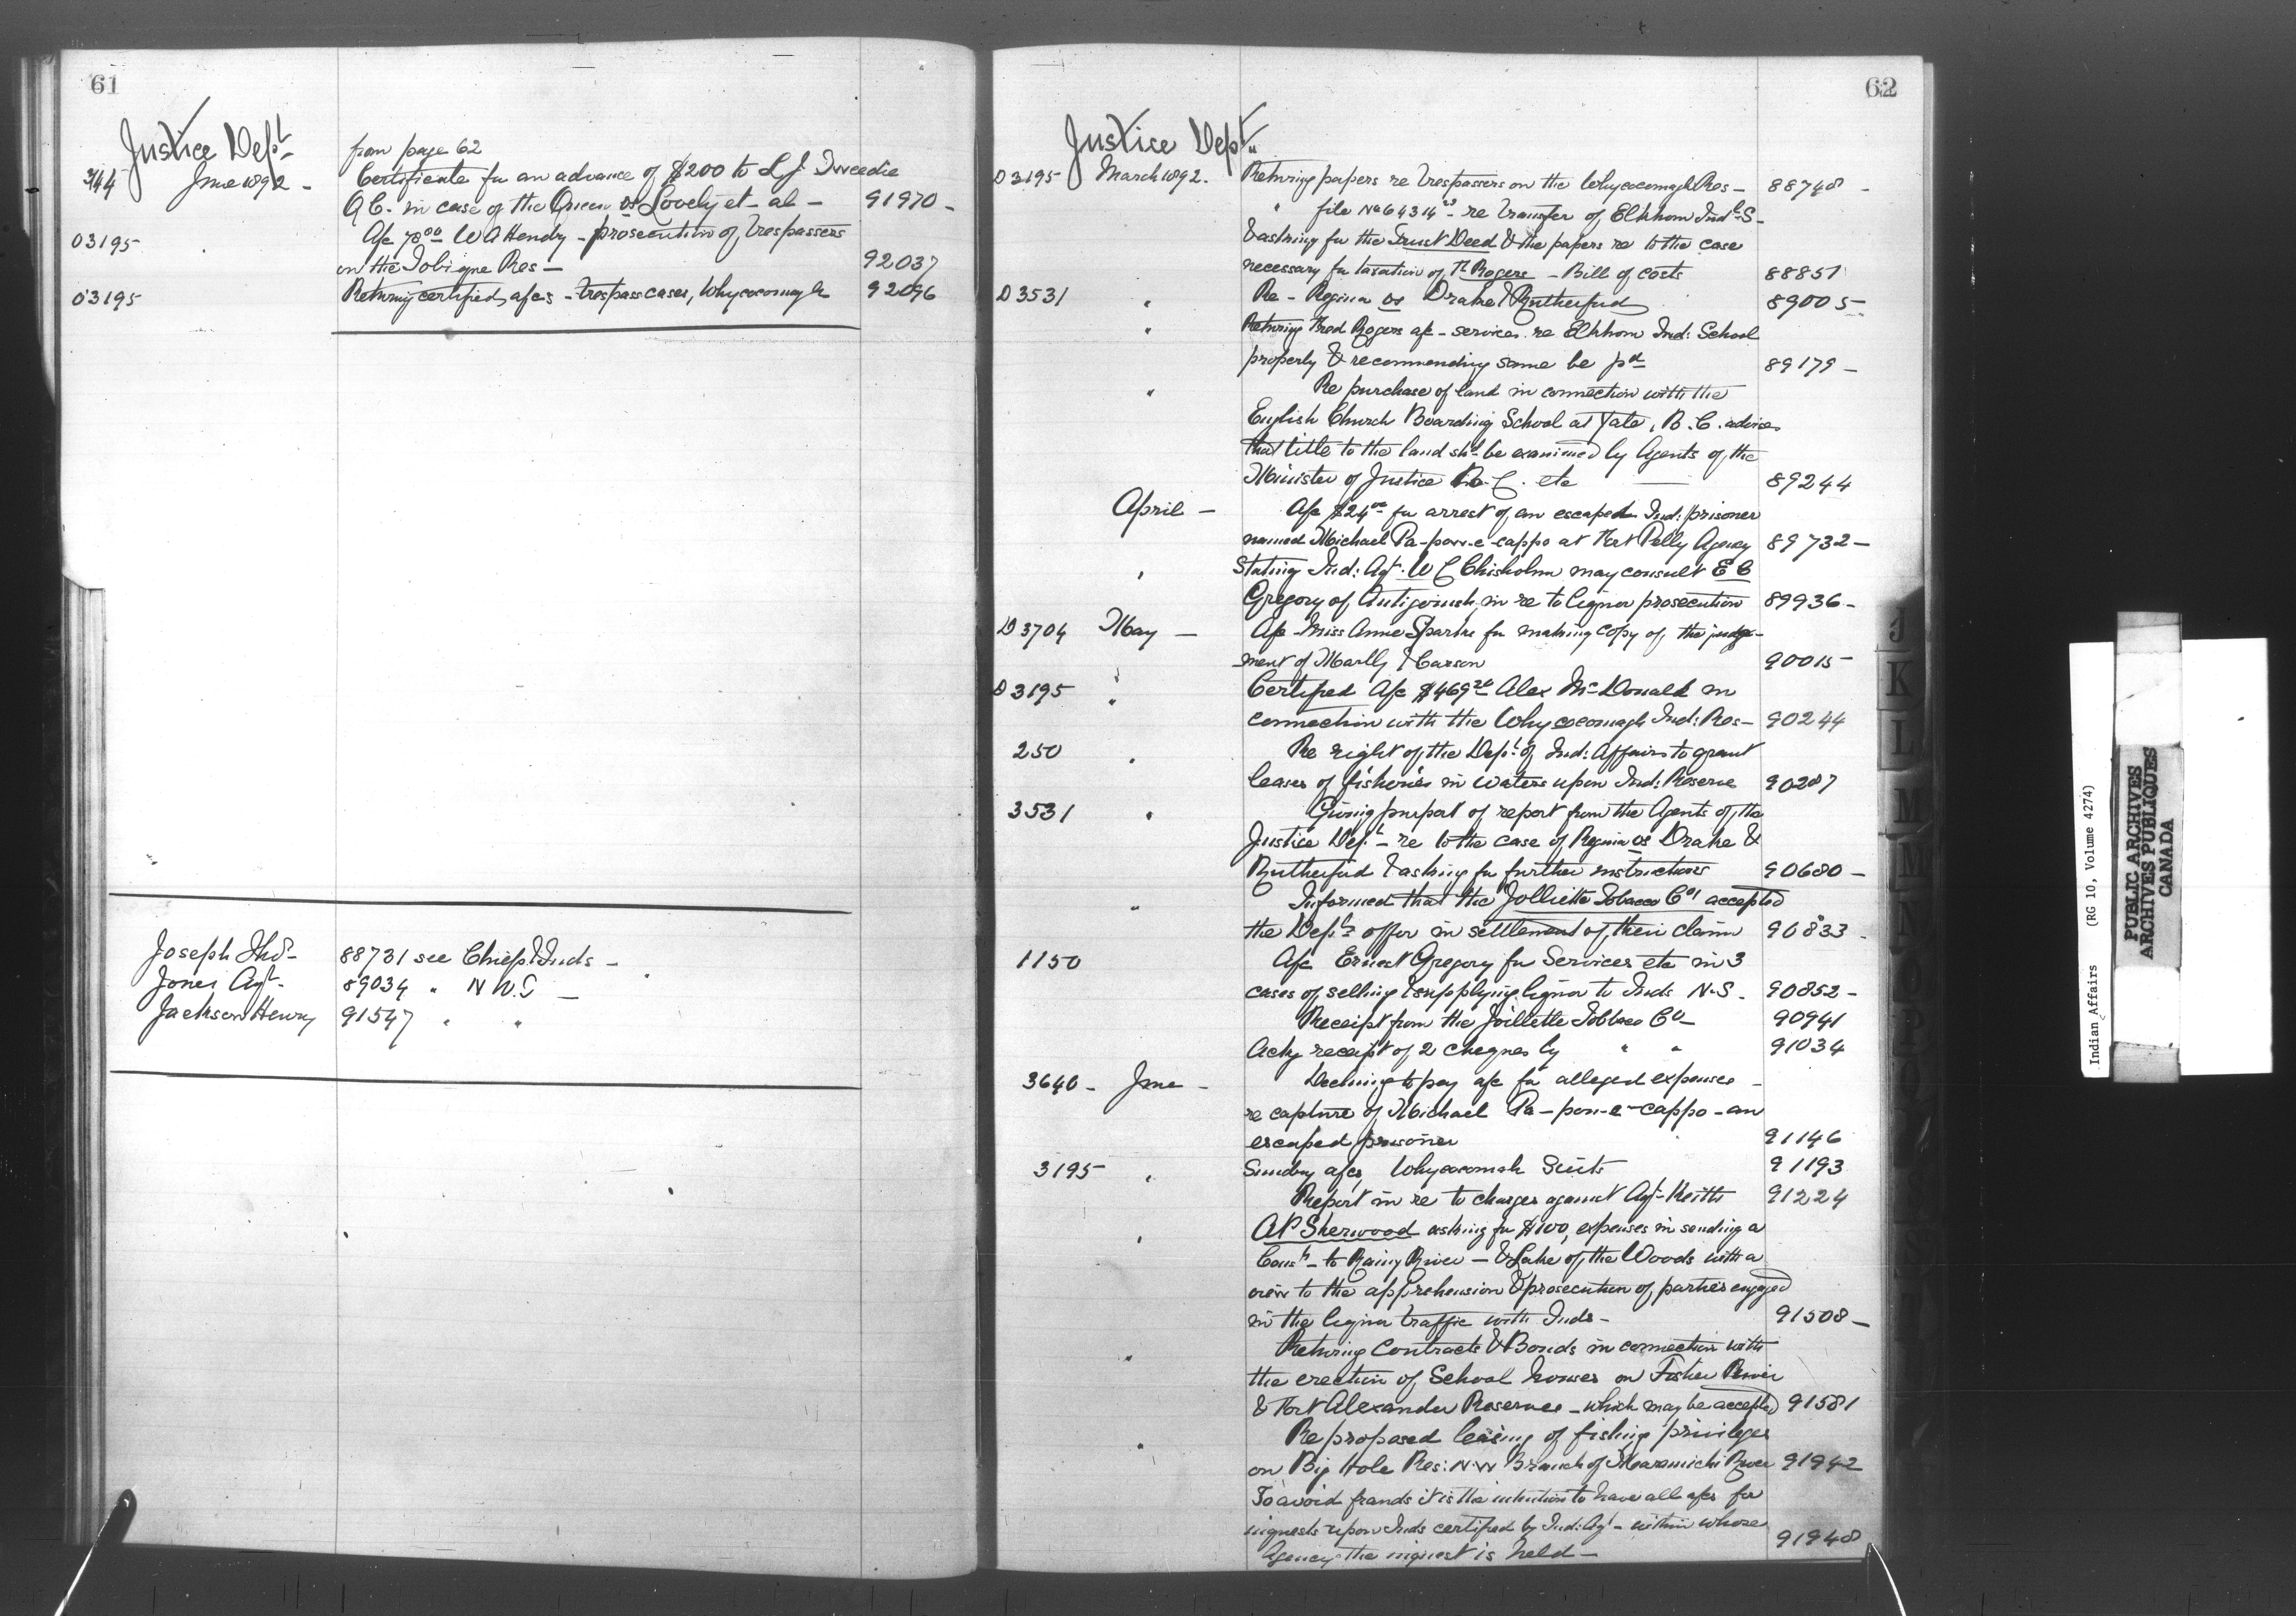 61
Justice Dept
from page 62
344 June 1892 - Certificate fr an advance of $200 to L. J. Tweedie
Q C. in case of the Queen vs Lovely et-al- 91970 -
03195 A/c 78 00 W A Hendry - prosecution of trespassers
on the Tobique Res - 92037
03195 Returning certified a/cs - trespass cases, Whycocomagh 92096
Joseph Thos 88731 see Chiefs & Inds -
Jones Agt - 89034 " N W. T -
Jackson Henry 91547 " "
62
Justice Dept
D3195 March 1892. Returning papers re trespassers on the Whycocomagh Res - 88748 -
" file No 64314 re transfer of Elkhorn Indl S -
& asking for the Trust Deed & the papers re to the case
necessary for taxation of T. Rogers - Bill of costs 88851
D3531 " Re - Regina vs Drake & Rutherford 89005 -
" Returning Fred Rogers a/c - services re Elkhorn Ind: School
property & recommending same be pd 89179 -
" Re purchase of land in connection with the
English Church Boarding School at Yale, B.C. advises
that title to the land shd be examined by Agents of the
Minister of Justice B.C. etc 89244
April - A/c $24 00 for arrest of an escaped Ind: prisoner
named Michael Pa-pow-e-cappo at Fort Pelly Agency 89732 -
" Stating Ind: Agt. W C Chisholm may consult E C
Gregory of Antigonish, in re to liquor prosecution 89936 -
D3704 May - A/c Miss Anne Sparks for making copy of the judge-
ment of & Carson 90015 -
D3195 " Certified A/c $469 20 Alex McDonald in
connection with the Whycocomagh Ind: Res - 90244
250 " Re right of the Dept of Ind: Affairs to grant
leases of fisheries in waters upon Ind: Reserve 90287
3531 " Giving purport of report from the Agents of the
Justice Dept - re to the case of Regina vs Drake &
Rutherford & asking for further instructions 90680 -
" Informed that the Jolliette Tobacco Co accepted
the Dept's offer in settlement of their claim 90833 -
1150 A/c Ernest Gregory for Services etc in 3
cases of selling & supplying liquor to Inds N.S. 90852 -
Receipt from the Joillette Tobbaco Co - 90941
Ackg receipt of 2 cheques by " " 91034
3640 - June - Declining to pay a/c for alleged expenses -
re capture of Michael Pa-pon-e-cappo - an
escaped prisoner 91146
3195 " Sundry a/cs, Whycocomah Suits 91193
Report in re to charges against Agt - Keith 91224
" A P Sherwood asking for $100, expenses in sending a
Const - to Rainy River - & Lake of the Woods with a
view to the apprehension & prosecution of parties engaged
in the liquor traffic with Inds - 91508 -
" Returning Contracts & Bonds in connection with
the erection of School houses on Fisher River
& Fort Alexander Reserves - which may be accepted 91581
" Re proposed leasing of fishing privileges
on Big Hole Res: N.W Branch of Maramichi River 91942
To avoid frauds it is the intention to have all a/cs for
inquests upon Inds certified by Ind: Agt - within whose
Agency the inquest is held - 91948
J
K
L
M
M
N
O
P
R
S
Indian Affairs (RG 10, Volume 4274)
PUBLIC ARCHIVES
ARCHIVES PUBLIQUES
CANADA